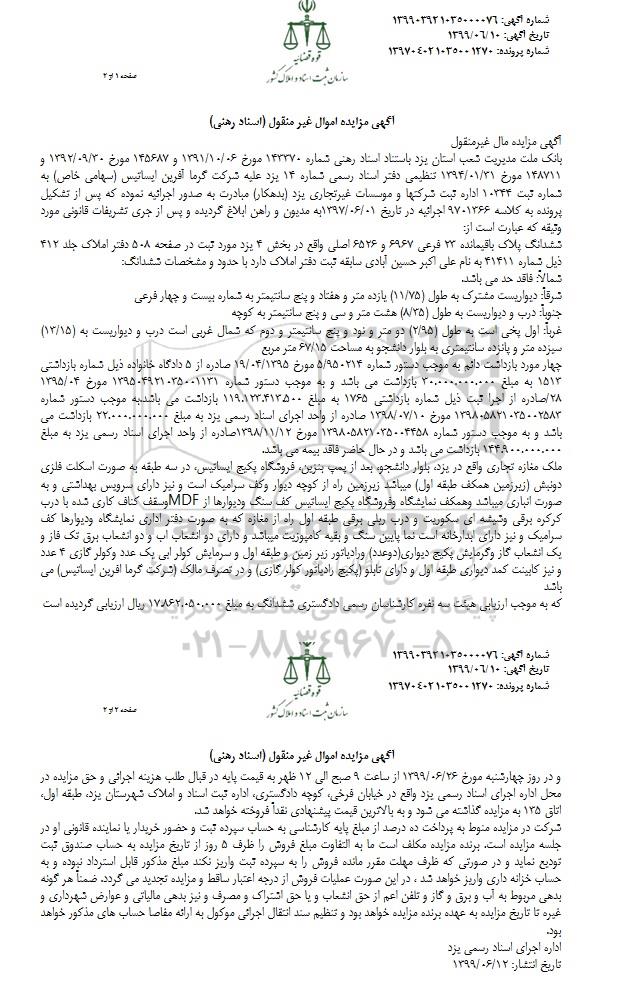 شماره آگهی: ۱۳۹۹۰۳۹۲۱۰۳۵۰۰۰۰۷۶
تاریخ آگهی: ۱۳۹۹/۰۶/۱۰
شماره پرونده: ۱۳۹۷۰۴۰۲۱۰۳۵۰۰۱۲۷۰
قوه قضائیه
سازمان ثبت اسناد و املاک کشور
صفحه ۱ از ۲
آگهی مزایده اموال غیر منقول (اسناد رهنی)
آگهی مزایده مال غیرمنقول
بانک ملت مدیریت شعب استان یزد باستناد اسناد رهنی شماره ۱۴۳۳۷۰ مورخ ۱۳۹۱/۱۰/۰۶ و ۱۴۵۶۸۷ مورخ ۱۳۹۲/۰۹/۳۰ و
۱۴۸۷۱۱ مورخ ۱۳۹۴/۰۱/۳۱ تنظیمی دفتر اسناد رسمی شماره ۱۴ یزد علیه شرکت گرما آفرین ایساتیس (سهامی خاص) به
شماره ثبت ۱۰۳۴۴ اداره ثبت شرکتها و موسسات غیرتجاری یزد (بدهکار) مبادرت به صدور اجرائیه نموده که پس از تشکیل
پرونده به کلاسه ۹۷۰۱۳۶۶ اجرائیه در تاریخ ۱۳۹۷/۰۶/۰۱به مدیون و راهن ابلاغ گردیده و پس از جری تشریفات قانونی مورد
وثیقه که عبارت است از:
ششدانگ پلاک باقیمانده ۲۳ فرعی ۶۹۶۷ و ۶۵۲۶ اصلی واقع در بخش ۴ یزد مورد ثبت در صفحه ۵۰۸ دفتر املاک جلد ۴۱۲
ذیل شماره ۴۱۴۱۱ به نام علی اکبر حسین آبادی سابقه ثبت دفتر املاک دارد با حدود و مشخصات ششدانگ:
شمالاً: فاقد حد می باشد.
شرقاً: دیواریست مشترک به طول (۱۱/۷۵) یازده متر و هفتاد و پنج سانتیمتر به شماره بیست و چهار فرعی
جنوباً: درب و دیواریست به طول (۸/۳۵) هشت متر و سی و پنج سانتیمتر به کوچه
غرباً: اول پخی است به طول (۲/۹۵) دو متر و نود و پنج سانتیمتر و دوم که شمال غربی است درب و دیواریست به (۱۳/۱۵)
سیزده متر و پانزده سانتیمتری به بلوار دانشجو به مساحت ۶۷/۱۵ متر مربع
چهار مورد بازداشت دائم به موجب دستور شماره ۵/۹۵۰۲۱۴ مورخ ۱۹/۰۴/۱۳۹۵ صادره از ۵ دادگاه خانواده ذیل شماره بازداشتی
۱۵۱۳ به مبلغ ۳۰.۰۰۰.۰۰۰.۰۰۰ بازداشت می باشد و به موجب دستور شماره ۱۳۹۵۰۴۹۲۱۰۳۵۰۰۱۱۳۱ مورخ ۱۳۹۵/۰۴
/۲۸صادره از اجرا ثبت ذیل شماره بازداشتی ۱۷۶۵ به مبلغ ۱۱۹.۱۲۳.۴۱۳.۵۰۰ بازداشت می باشدبه موجب دستور شماره
۱۳۹۸۰۵۸۲۱۰۳۵۰۰۲۵۸۳ مورخ ۱۳۹۸/۰۷/۱۰ صادره از واحد اجرای اسناد رسمی یزد به مبلغ ۲۲.۰۰۰.۰۰۰.۰۰۰ بازداشت می
باشد و به موجب دستور شماره ۱۳۹۸۰۵۸۲۱۰۳۵۰۰۴۴۵۸ مورخ ۱۳۹۸/۱۱/۱۲صادره از واحد اجرای اسناد رسمی یزد به مبلغ
۱۴۴.۹۰۰.۰۰۰.۰۰۰ بازداشت می باشد و در حال حاضر فاقد بیمه می باشد.
ملک مغازه تجاری واقع در یزد، بلوار دانشجو، بعد از پمپ بنزین، فروشگاه پکیج ایساتیس، در سه طبقه به صورت اسکلت فلزی
دونبش (زیرزمین همکف طبقه اول) میباشد زیرزمین راه از کوچه دیوار وکف سرامیک است و نیز دارای سرویس بهداشتی و به
صورت انباری میباشد وهمکف نمایشگاه وفروشگاه پکیج ایساتیس کف سنگ ودیوارها از MDFوسقف کناف کاری شده با درب
کرکره برقی وشیشه ای سکوریت و درب ریلی برقی طبقه اول راه از مغازه که به صورت دفتر اداری نمایشگاه ودیوارها کف
سرامیک و نیز دارای ابدارخانه است نما پایین سنگ و بقیه کامپوزیت میباشد و دارای دو انشعاب اب و دو انشعاب برق تک فاز و
یک انشعاب گاز وگرمایش پکیج دیواری(دوعدد) ورادیاتور زیر زمین و طبقه اول و سرمایش کولر ابی یک عدد وکولر گازی ۴ عدد
و نیز کابینت کمد دیواری طبقه اول و دارای تابلو (پکیج رادیاتور کولر گازی) و در تصرف مالک (شرکت گرما افرین ایساتیس) می
باشد
که به موجب ارزیابی هیئت سه نفره کارشناسان رسمی دادگستری ششدانگ به مبلغ ۱۷.۸۶۲.۰۵۰.۰۰۰ ریال ارزیابی گردیده است
پایگاه اطلاع رسانی مناقصه و مزایده
۰۲۱-۸۸۳۴۹۶۷۰-۵
شماره آگهی: ۱۳۹۹۰۳۹۲۱۰۳۵۰۰۰۰۷۶
تاریخ آگهی: ۱۳۹۹/۰۶/۱۰
شماره پرونده: ۱۳۹۷۰۴۰۲۱۰۳۵۰۰۱۲۷۰
قوه قضائیه
سازمان ثبت اسناد و املاک کشور
صفحه ۲ از ۲
آگهی مزایده اموال غیر منقول (اسناد رهنی)
و در روز چهارشنبه مورخ ۱۳۹۹/۰۶/۲۶ از ساعت ۹ صبح الی ۱۲ ظهر به قیمت پایه در قبال طلب هزینه اجرائی و حق مزایده در
محل اداره اجرای اسناد رسمی یزد واقع در خیابان فرخی، کوچه دادگستری، اداره ثبت اسناد و املاک شهرستان یزد، طبقه اول،
اتاق ۱۳۵ به مزایده گذاشته می شود و به بالاترین قیمت پیشنهادی نقداً فروخته خواهد شد.
شرکت در مزایده منوط به پرداخت ده درصد از مبلغ پایه کارشناسی به حساب سپرده ثبت و حضور خریدار یا نماینده قانونی او در
جلسه مزایده است. برنده مزایده مکلف است ما به التفاوت مبلغ فروش را ظرف ۵ روز از تاریخ مزایده به حساب صندوق ثبت
تودیع نماید و در صورتی که ظرف مهلت مقرر مانده فروش را به سپرده ثبت واریز نکند مبلغ مذکور قابل استرداد نبوده و به
حساب خزانه داری واریز خواهد شد ، در این صورت عملیات فروش از درجه اعتبار ساقط و مزایده تجدید می گردد. ضمناً هر گونه
بدهی مربوط به آب و برق و گاز و تلفن اعم از حق انشعاب و یا حق اشتراک و مصرف و نیز بدهی مالیاتی و عوارض شهرداری و
غیره تا تاریخ مزایده به عهده برنده مزایده خواهد بود و تنظیم سند انتقال اجرائی موکول به ارائه مفاصا حساب های مذکور خواهد
بود.
اداره اجرای اسناد رسمی یزد
تاریخ انتشار: ۱۳۹۹/۰۶/۱۲